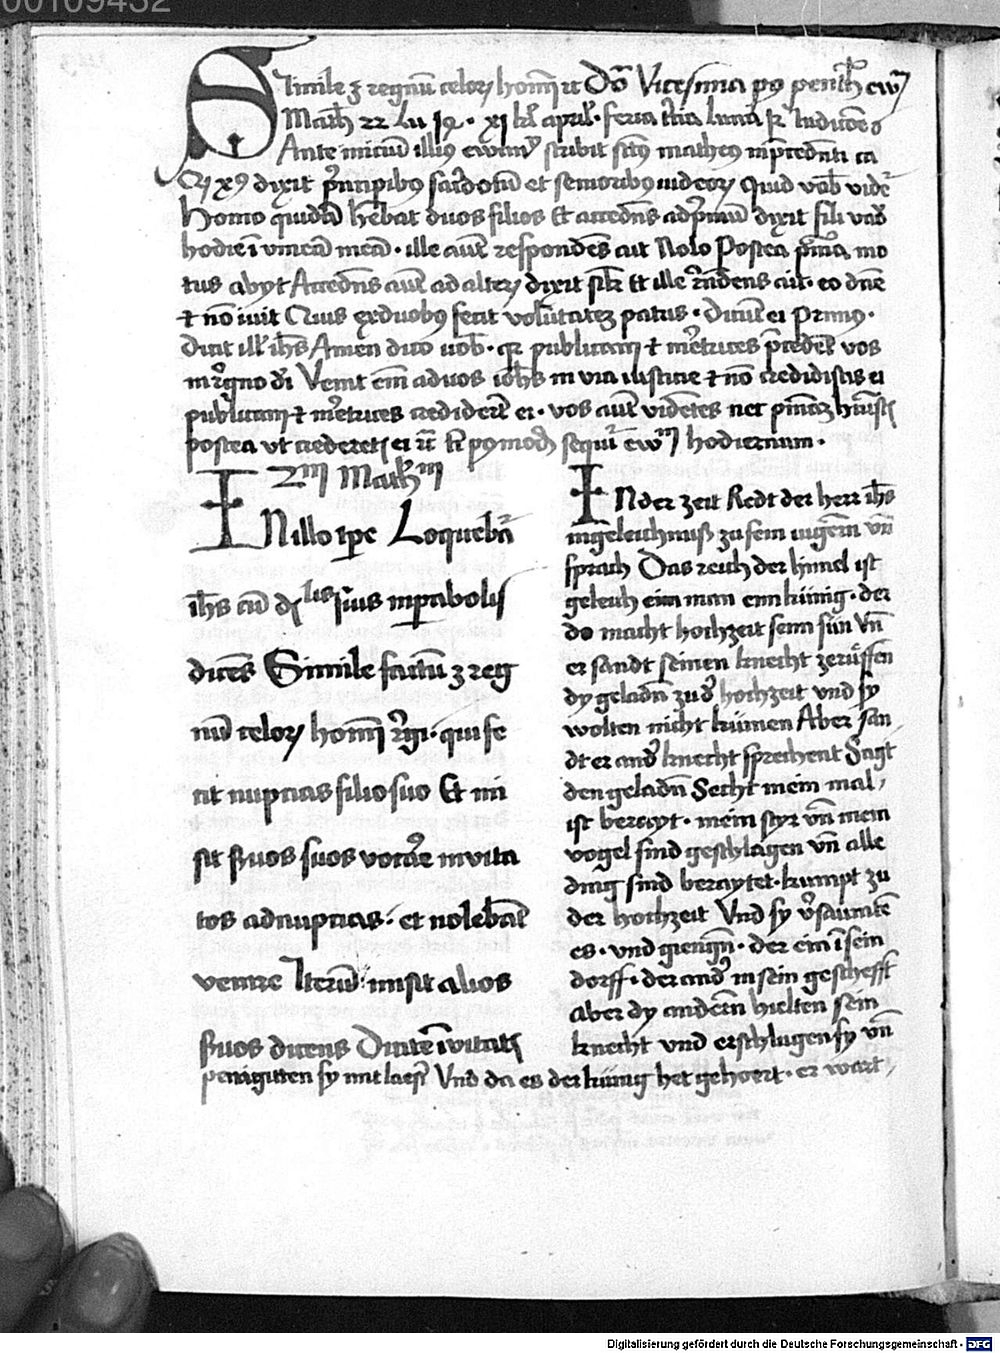 00109432
Simile ꝫ regnū celoꝝ homī rt Dō Vicesima pꝰ penth ewᷓ
Math 22 Lu 14 · xi kł april · feria tcia luna
Ante iniciū illiꝰ ewāyᷓ scribit scūs matheꝰ in p̄cedn̄ti ca
xp̄s dixit p̄ncipibꝰ sacerdotū et senioribꝰ iudeoꝝ Quid vob videt̄
Homo quidā hēbat duos filios Et accedn̄s ad p̄mū dixit fili vad
hodie ī vineā meā · ille aūt respondēs ait Nolo Postea p̄nīa mo
tus abyt Accedn̄s aūt ad alteꝝ dixit silr Et ille r̄ndens ait · eo dn̄e
⁊ nō iuit Quis ex duobꝰ fecit volūtatez patris · Dicūt ei Primꝰ ·
Dicit ill ih̄s Amen dico uob · qr publicani ⁊ mēretrices p̄cedēt vos
in r̄gno dī Venit em̄ ad uos ioh̄s in via iusticie ⁊ nō credidistis ei
publicani ⁊ mēretrices credidert̄ ei · vos aūt vidētes nec pnīaz hūistꝭ
postea vt crederetꝭ ei sequit̄ ewᷓm hodiernum ·
2m Mathm
IN illo tp̄e Loquebat̄
ih̄s cū discipulis suis in parabolis
dicēs Simile factū ꝫ reg
nū celoꝝ homī r̄gi · qui fe
cit nupcias filio suo Et mi
sit s̄uos suos vocar̄e invita
tos ad nupcias · et nolebāt
venire Iterū misit alios
s̄uos dicens Dicite īvitatꝭ
IN der zeit Redt der herr ih̄s
in geleichnuß zu sein iūgern̄ vn̄
sprach Das reich der himel ist
geleich eim man eim künig · der
do macht hochzeit seim sün Vn̄
er sandt seinen knecht zerüffen
dy geladn̄ zu d̄ hochzeit vnd sy
wolten nicht kümen Aber san
dt er and̄ knecht sprechent Sagt
den geladn̄ Secht mein mal
ist berayt · mein styr vn̄ mein
vogel sind geschlagen vn̄ alle
ding sind beraytet · kumpt zu
der hochzeit Vnd sy v̄saumtē
es · vnd giengn̄ · der ein ī sein
dorff · der and̄ in sein gescheft
aber dy andern̄ hielten sein
knecht vnd erschlugen sy vn̄
peinigitten sy mit laest̄ Vnd da es der künig het gehoert · er wart
Digitalisierung gefördert durch die Deutsche Forschungsgemeinschaft - DFG